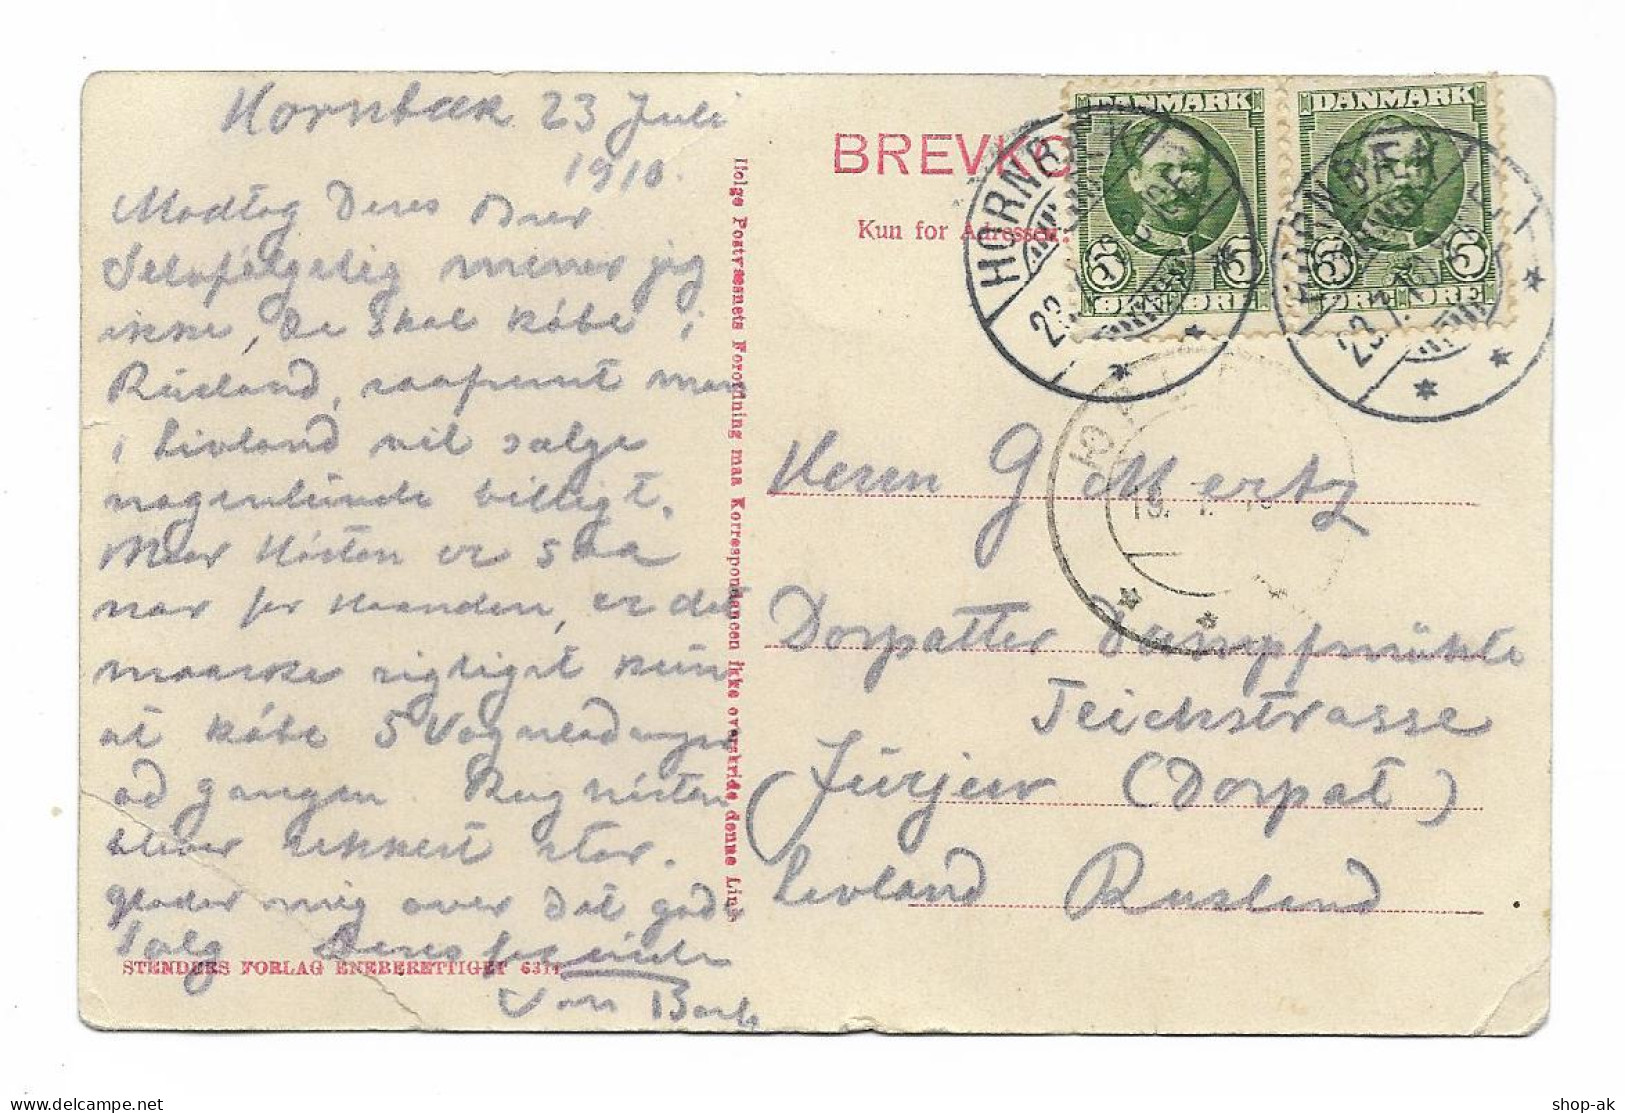 Hornbæk 23 Juli
1910.
Modtog Deres Brev
Selvfølgelig mener jeg
ikke, De skal købe i
Rusland, saafremt man
i Livland vil sælge
nogenlunde billigt.
Men Høsten er saa
nær for Haanden, er det
maaske rigtigst kun
at købe 5 Vognladninger
ad gangen. Rug høsten
bliver sikkert stor.
Glæder mig over det gode
Salg Deres
Von
Helge Postvæsnets Forordning maa Korrespondancen ikke overskride denne Linie
STENDERS FORLAG ENEBERETTIGET 631
BREVKO
Kun for Adressen:
DANMARK
5 5
ØRE ØRE
DANMARK
5 5
ØRE ØRE
HORNBÆK
23
HORNBÆK
23.7.10
Herrn G Mertz
Dorpatter Dampfmühle
Teichstrasse
Jurjew (Dorpat)
Livland Rusland
shop-ak